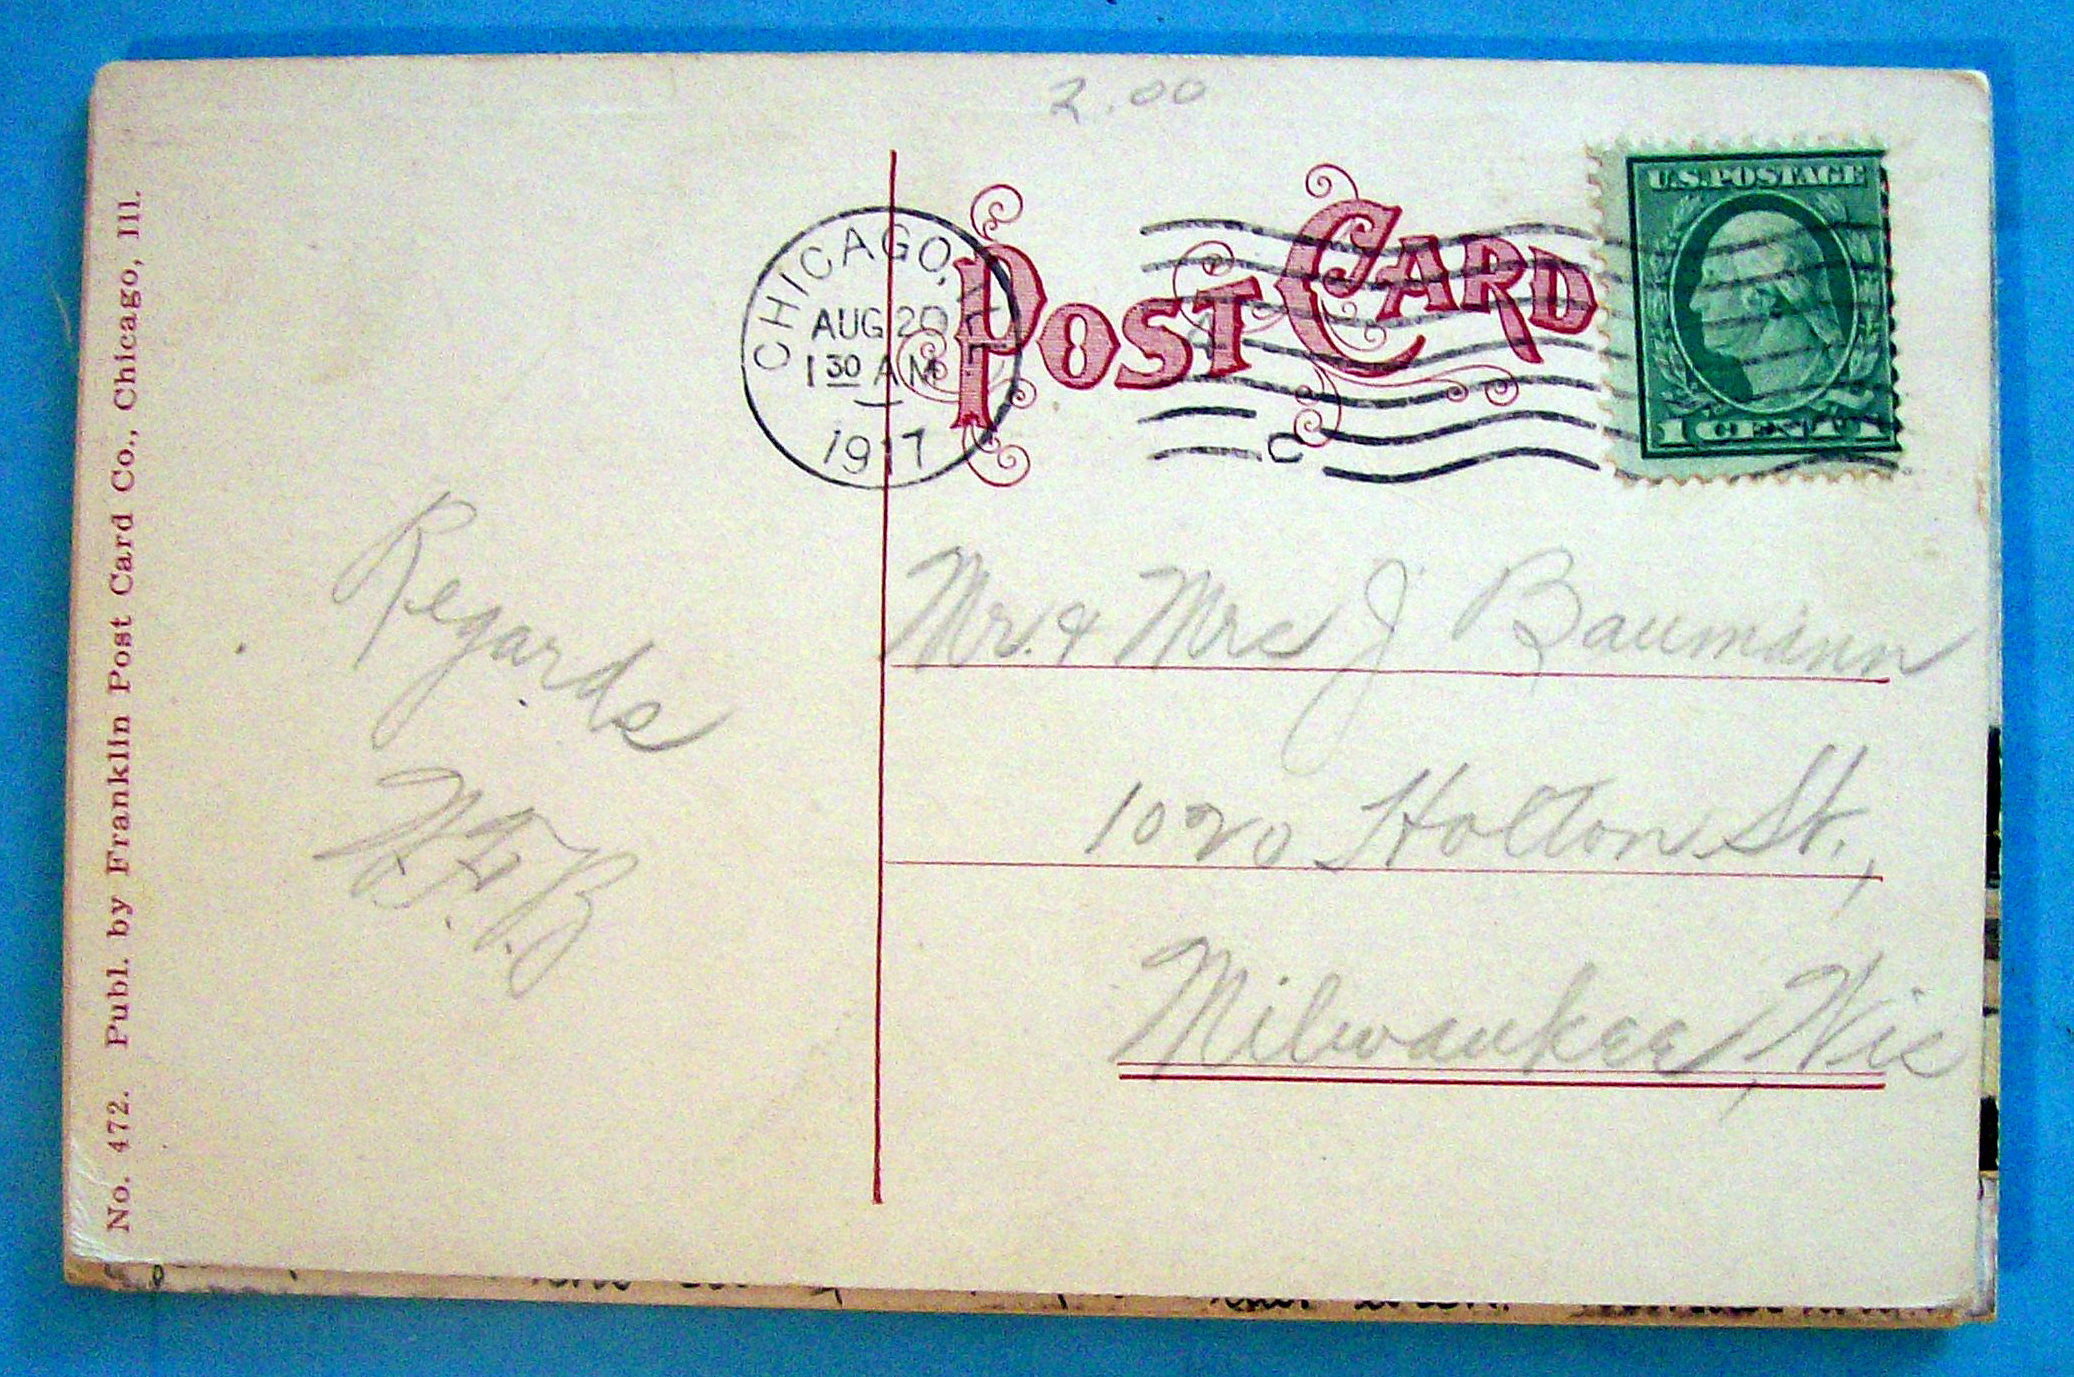 2.00
No. 472. Publ. by Franklin Post Card Co., Chicago, Ill.
CHICAGO, ILL
AUG 20
1 30 AM
1917
POST CARD
U.S. POSTAGE
1 CENT 1
C
Regards
W.F.B
Mr. & Mrs J Baumann
1020 Holton St.,
Milwaukee, Wis